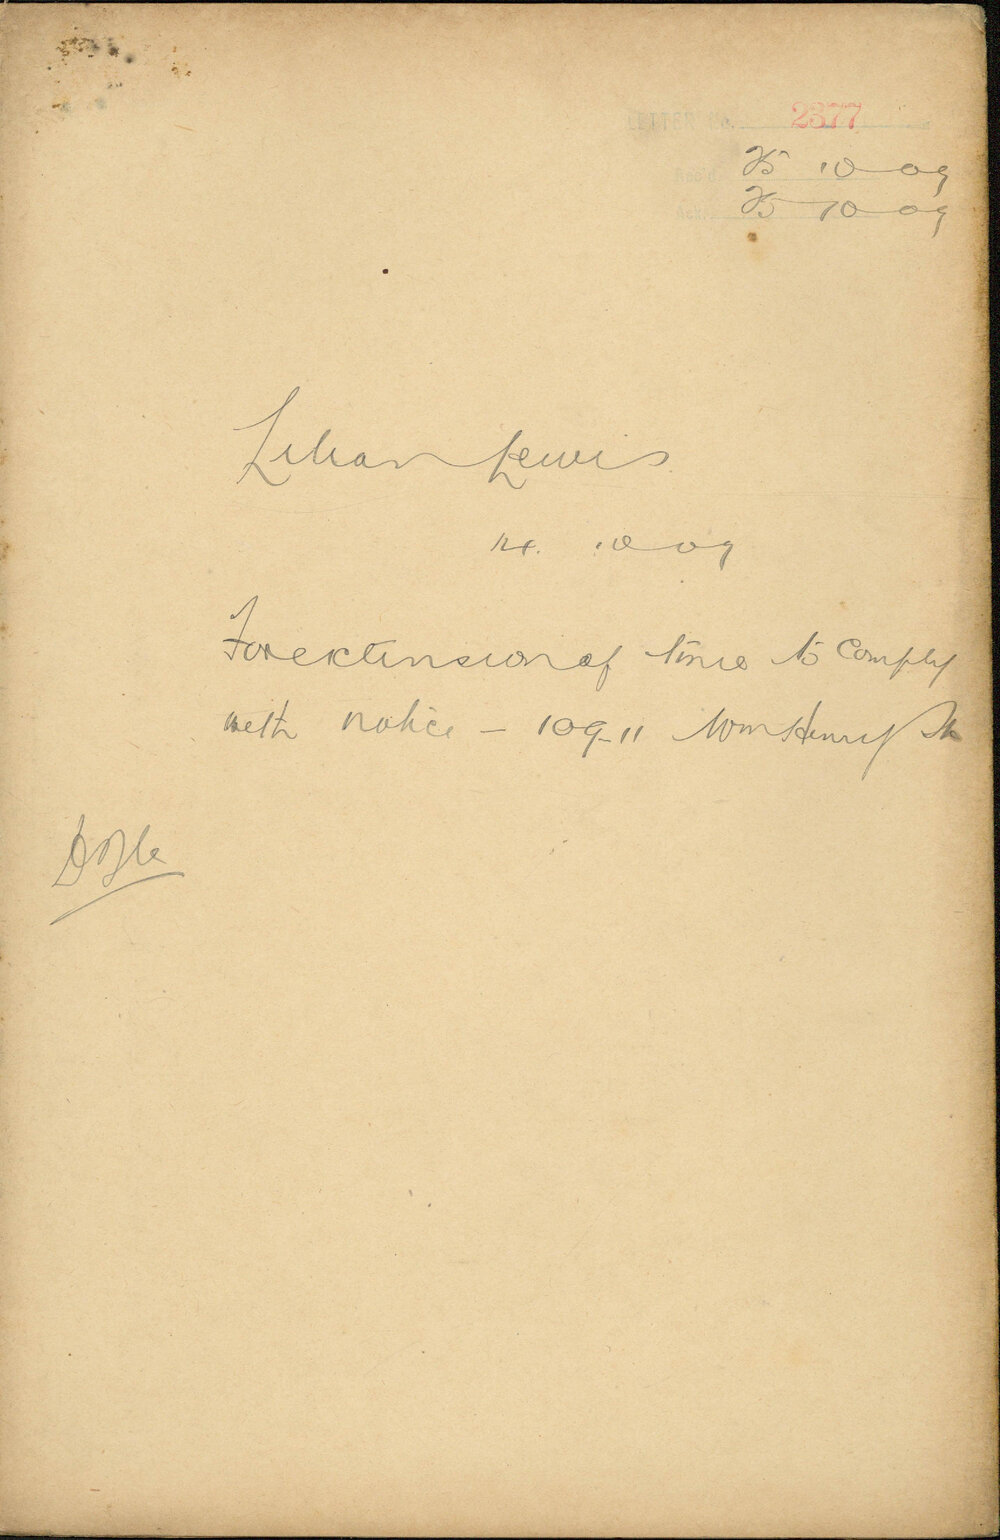 LETTER No. 2377
25 10 09
25 10 09
Lilian Lewis
14. 10 09
For extension of time to comply
with notice - 109-11 Wm Henry St
Doyle